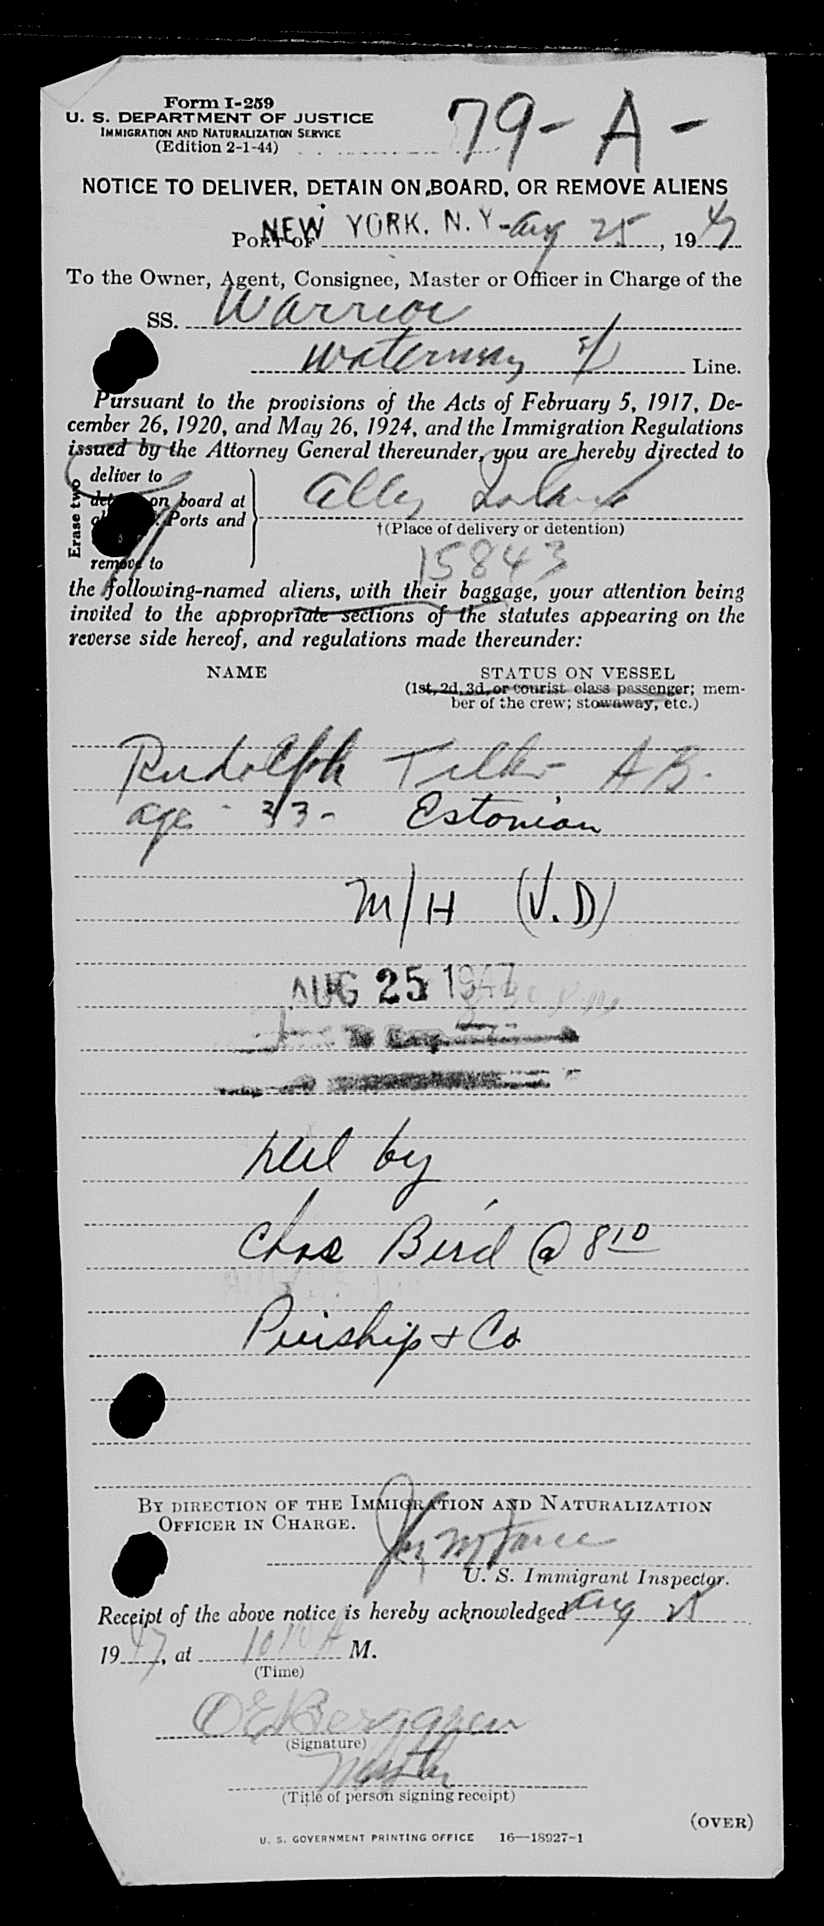 Form I-259
U. S. DEPARTMENT OF JUSTICE
IMMIGRATION AND NATURALIZATION SERVICE
(Edition 2-1-44)
79-A-
NOTICE TO DELIVER, DETAIN ON BOARD, OR REMOVE ALIENS
Port of NEW YORK, N. Y.- Aug 25, 1947
To the Owner, Agent, Consignee, Master or Officer in Charge of the
SS. Warrior
Waterman Line.
Pursuant to the provisions of the Acts of February 5, 1917, De-
cember 26, 1920, and May 26, 1924, and the Immigration Regulations
issued by the Attorney General thereunder, you are hereby directed to
Erase two
deliver to
on board at
Ports and
remove to
Ellis Island
†(Place of delivery or detention)
15843
the following-named aliens, with their baggage, your attention being
invited to the appropriate sections of the statutes appearing on the
reverse side hereof, and regulations made thereunder:
NAME STATUS ON VESSEL
(1st, 2d, 3d, or tourist class passenger; mem-
ber of the crew; stowaway, etc.)
Rudolph A B.
age - 33 - Estonian
M/H (V.D)
AUG 25 1947
by
Chas Bird @ 8 10
& Co
BY DIRECTION OF THE IMMIGRATION AND NATURALIZATION
OFFICER IN CHARGE.
U. S. Immigrant Inspector.
Receipt of the above notice is hereby acknowledged Aug 25
1947, at 1010 A M.
(Time)
(Signature)
Master
(Title of person signing receipt)
(OVER)
U. S. GOVERNMENT PRINTING OFFICE 16—18927-1